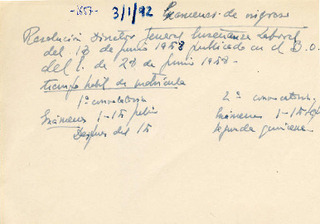 -1557- 3/1/92 Exámenes de ingreso
Resolución Director General Enseñanza Laboral
del 17 de junio 1958 publicado en el B.O.
del E. de 27 de junio 1958-
tiempo hábil de matrícula
1ª convocatoria
Exámenes 1-15 julio
Después del 15
2ª convocatoria
Exámenes 1-15
segunda quincena